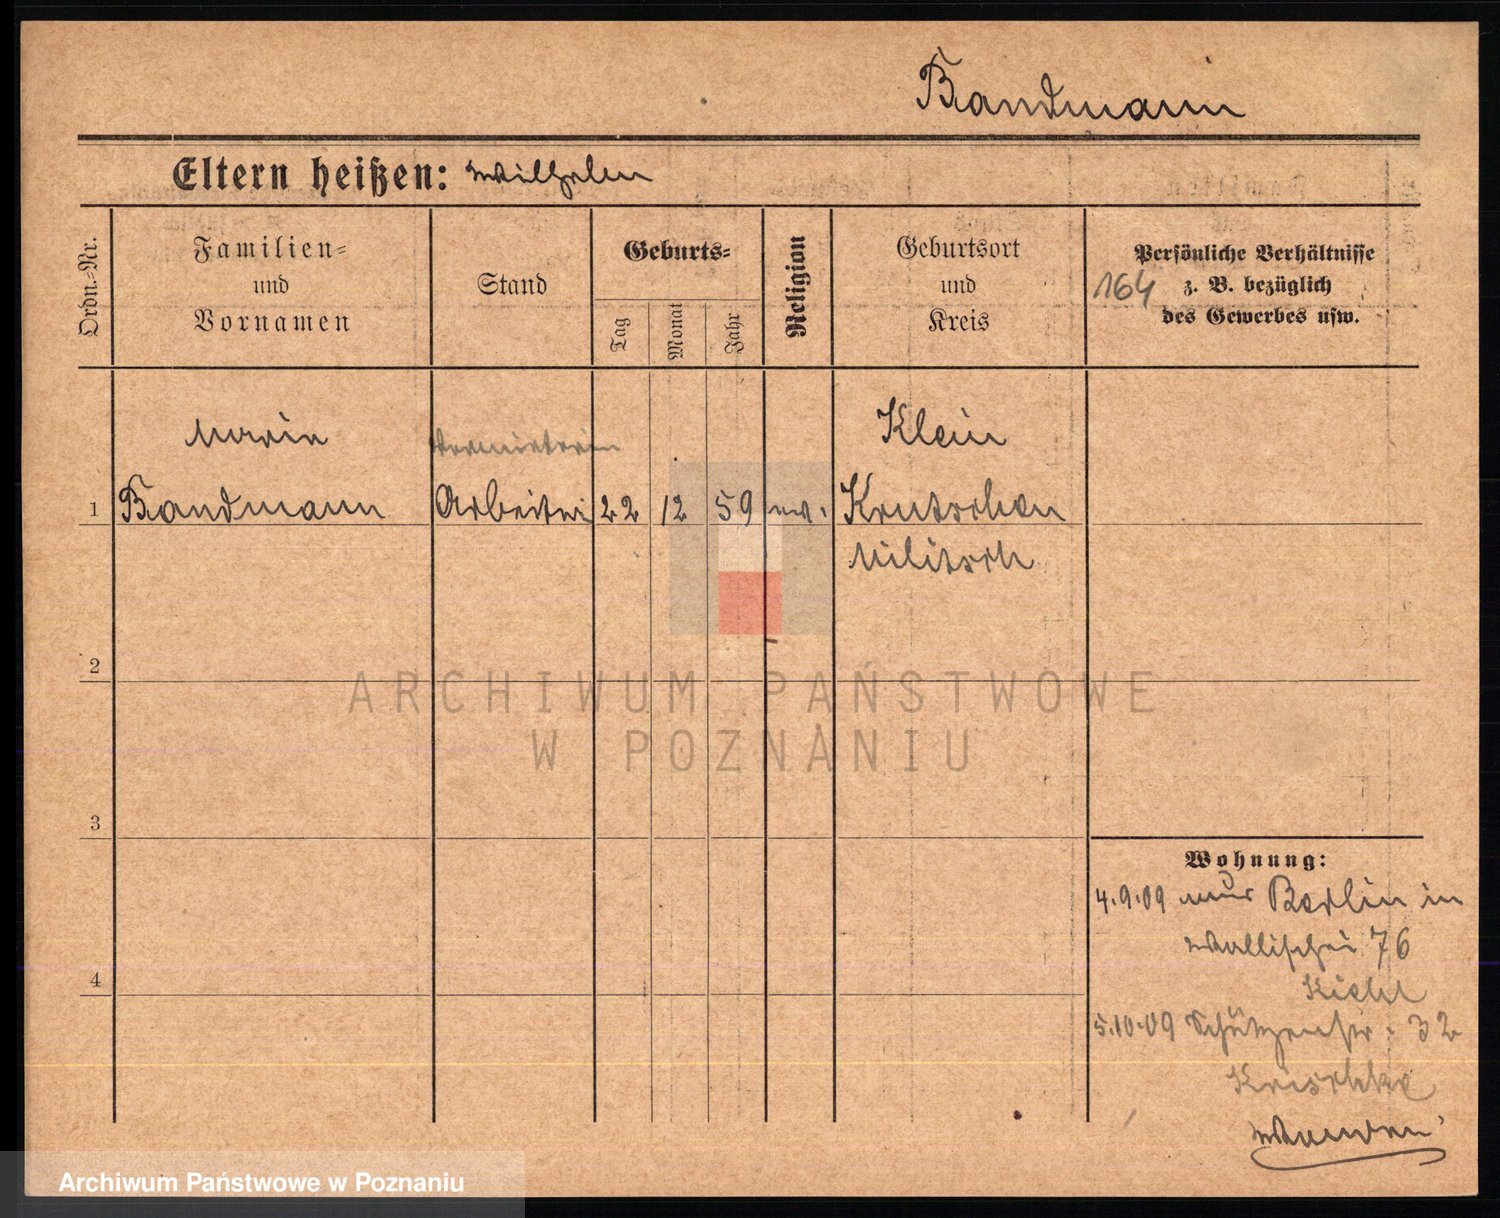 Bandmann
Eltern heißen: Wilhelm
Ordn.-Nr.
Familien-
und
Vornamen
Stand
Geburts-
Tag
Monat
Jahr
Religion
Geburtsort
und
Kreis
Persönliche Verhältnisse
164 z. B. bezüglich
des Gewerbes usw.
Marie
Klein
1 Bandmann Arbeiterin 22 12 59 ev. Krutschen
Militsch
2
3
4
ARCHIWUM PAŃSTWOWE
W POZNANIU
Wohnung:
4.9.09 aus Berlin in
Wallischei 76
5.10.09 Schützenstr. 32
Archiwum Państwowe w Poznaniu